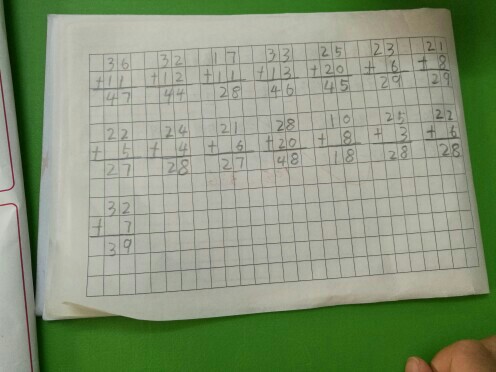 36 32 17 33 25 23 21
+11 +12 +11 +13 +20 + 6 + 8
47 44 28 46 45 29 29
22 24 21 28 10 25 22
+ 5 + 4 + 6 +20 + 8 + 3 + 6
27 28 27 48 18 28 28
32
+ 7
39